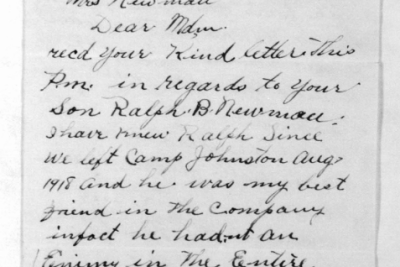 Mrs Newman
Dear Mdm.
recd your Kind letter This
Pm. in regards to your
Son Ralph B. Newman.
I have knew Ralph Since
we left Camp Johnston Aug
1918 and he was my best
friend in the Company
infact he had-t an
Enemy in The Entire